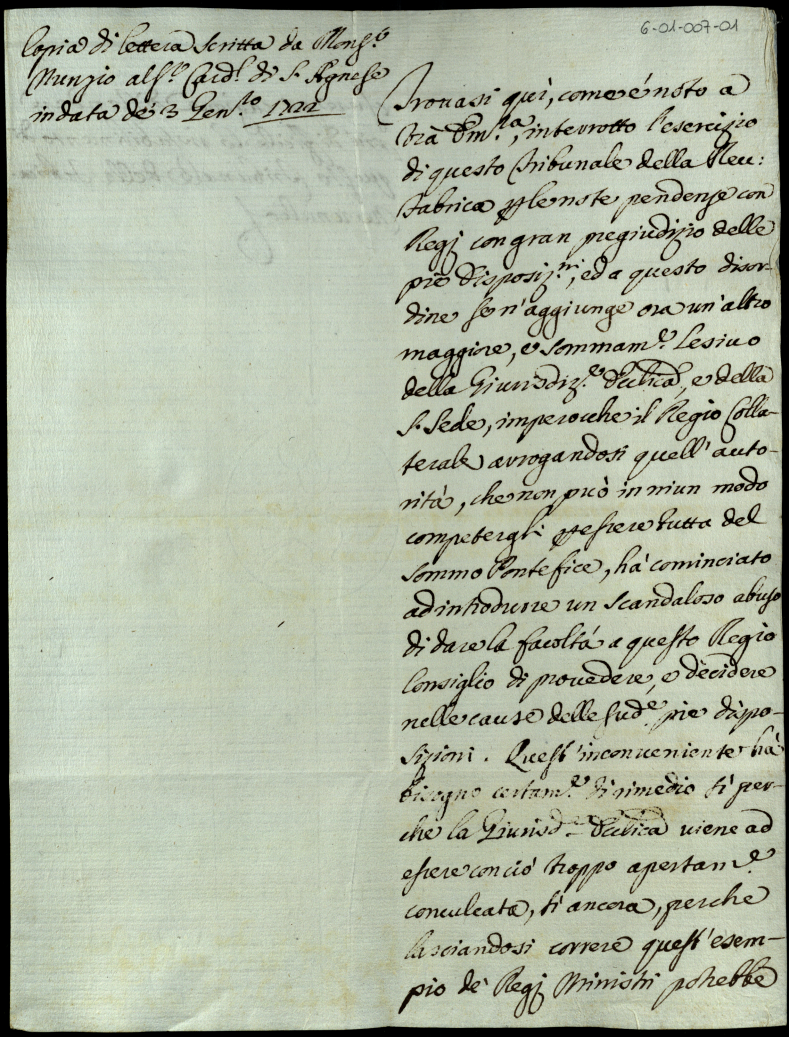 6-01-007-01
Copia di lettera scritta da Mons.r
Nunzio all' Card.l di S. Agnese
in data de' 3 Gen.ro 1722
Trovasi quì, come é noto a
Vrã Em.za, interrotto l'esercizio
di questo Tribunale della Reu:
Fabrica p le note pendenze con
Regj con gran pregiudizio delle
pie disposiz.ni, ed a questo disor-
dine se n'aggiunge ora un'altro
maggiore, e sommam.e lesivo
della Giurisdiz.e Ecclica, e della
S. Sede, imperocche il Regio Colla-
terale arrogandosi quell'auto-
rità, che non può in niun modo
competergli p essere tutta del
sommo Pontefice, há cominciato
ad introdurre un scandaloso abuso
di dare la facoltà a questo Regio
Consiglio di provedere, e decidere
nelle cause delle sud.e pie dispo-
sizioni. Quest'inconveniente há
bisogno certam.e di rimedio sì per-
che la Giurisd.ne Ecclica viene ad
essere con ciò troppo apertam.e
conculcata, sì ancora, perche
lasciandosi correre quest'esem-
pio de' Regj Ministri potrebbe